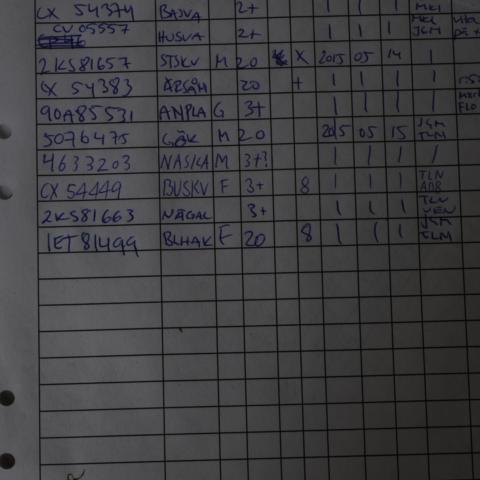 CX 54374 BAJVA 2+ | | | MKL
CV 05557 HUSVA 2+ | | | MKL JGM
2KS81657 STSKV M 20 X 2015 05 14 |
CX 54383 ÄRSÅM 20 + | | | |
90A85531 ANPLA G 3+ | | | |
5076475 GÖK M 20 2015 05 15 JGM TLM
4633203 NASKA M 3+? | | | |
CX 54449 BUSKV F 3+ 8 | | | TLN
2KS81663 NÄGAL 3+ | | | TLN
1ET81499 BLHAK F 20 8 | | | JGM TLM